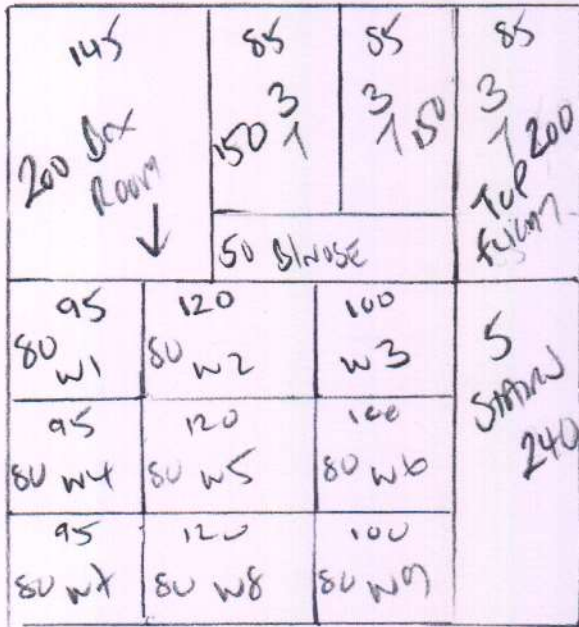 145
200 Box
Room
85
3
150 1
85
3
1 150
85
3
1 200
Top
50 B/NOSE
95
80 W1
120
80 W2
100
W3
5
240
95
80 W4
120
80 W5
100
80 W6
95
80 W7
120
80 W8
100
80 W9